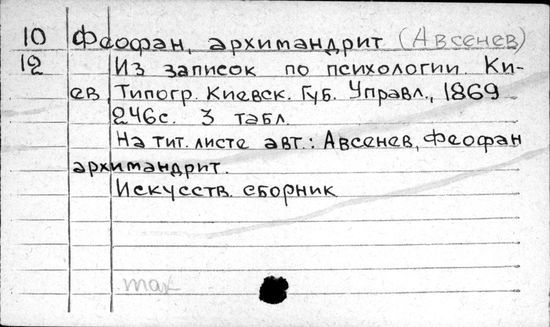 10 Феофан, архимандрит (Авсенев)
12 Из записок по психологии. Ки-
ев, Типогр. Киевск. Губ. Управл., 1869
246с. 3 табл.
На тит. листе авт.: Авсенев, Феофан
архимандрит.
Искусств. сборник
max